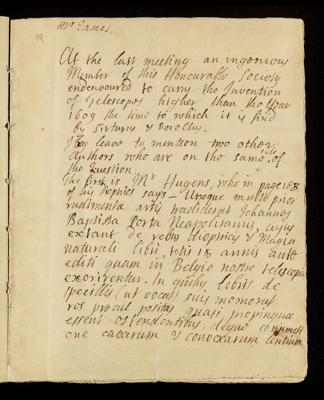 Mr Eames.
19
At the last meeting an ingenious
Member of this Honourable Society
endeavoured to carry the Invention
of Telescopes higher than the Year
1609 the time to which it is fixd
by Sirturus & Borellus.
I beg leave to mention two other
Authors who are on the same side of
the Question.
The first is Mr Hugens, who in page 163
of his Dioptrics says — Utroque multo prior
rudimenta artis tradiderat Johannes
Baptista Porta Neapolitanus, cujus
extant de rebus dioptricis & Magia
naturali libri, totis 15 annis ante
editi quam in Belgio nostro telescopia
exorirentur. In quibus libris de
specillis (ut vocat) suis memorat
res procul positas quasi propinquae
essent ostendentibus, deque conjuncti
one cavarum & convexarum lentium